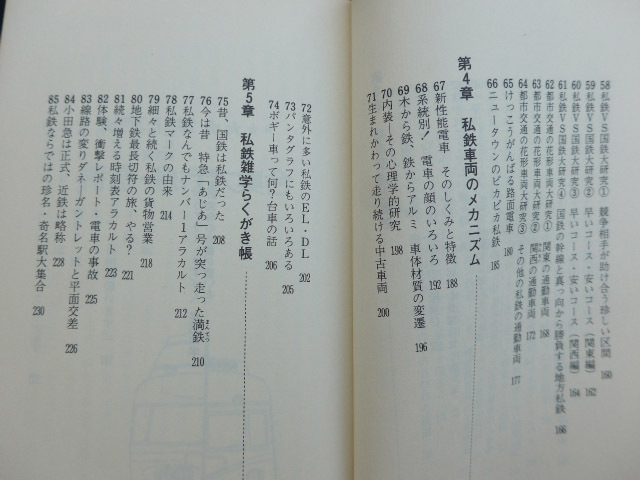 58 私鉄VS国鉄大研究① 競争相手が助け合う珍しい区間 160
59 私鉄VS国鉄大研究② 早いコース・安いコース(関東編) 162
60 私鉄VS国鉄大研究③ 早いコース・安いコース(関西編) 164
61 私鉄VS国鉄大研究④ 国鉄の幹線と真っ向から勝負する地方私鉄 166
62 都市交通の花形車両大研究① 関東の通勤車両 168
63 都市交通の花形車両大研究② 関西の通勤車両 172
64 都市交通の花形車両大研究③ その他の私鉄の通勤車両 177
65 けっこうがんばる路面電車 180
66 ニュータウンのピカピカ私鉄 185
第4章 私鉄車両のメカニズム
67 新性能電車 そのしくみと特徴 188
68 系統別! 電車の顔のいろいろ 192
69 木から鉄、鉄からアルミ 車体材質の変遷 196
70 内装―その心理学的研究 198
71 生まれかわって走り続ける中古車両 200
72 意外に多い私鉄のEL・DL 202
73 パンタグラフにもいろいろある 205
74 ボギー車って何?台車の話 206
第5章 私鉄雑学らくがき帳
75 昔、国鉄は私鉄だった 208
76 今は昔 特急「あじあ」号が突っ走った満鉄 210
77 私鉄なんでもナンバー1アラカルト 212
78 私鉄マークの由来 214
79 細々と続く私鉄の貨物営業 218
80 地下鉄最長切符の旅、やる? 221
81 続々増える時刻表アラカルト 223
82 体験、衝撃レポート・電車の事故 225
83 線路の変りダネ―ガントレットと平面交差 226
84 小田急は正式、近鉄は略称 228
85 私鉄ならではの珍名・奇名駅大集合 230